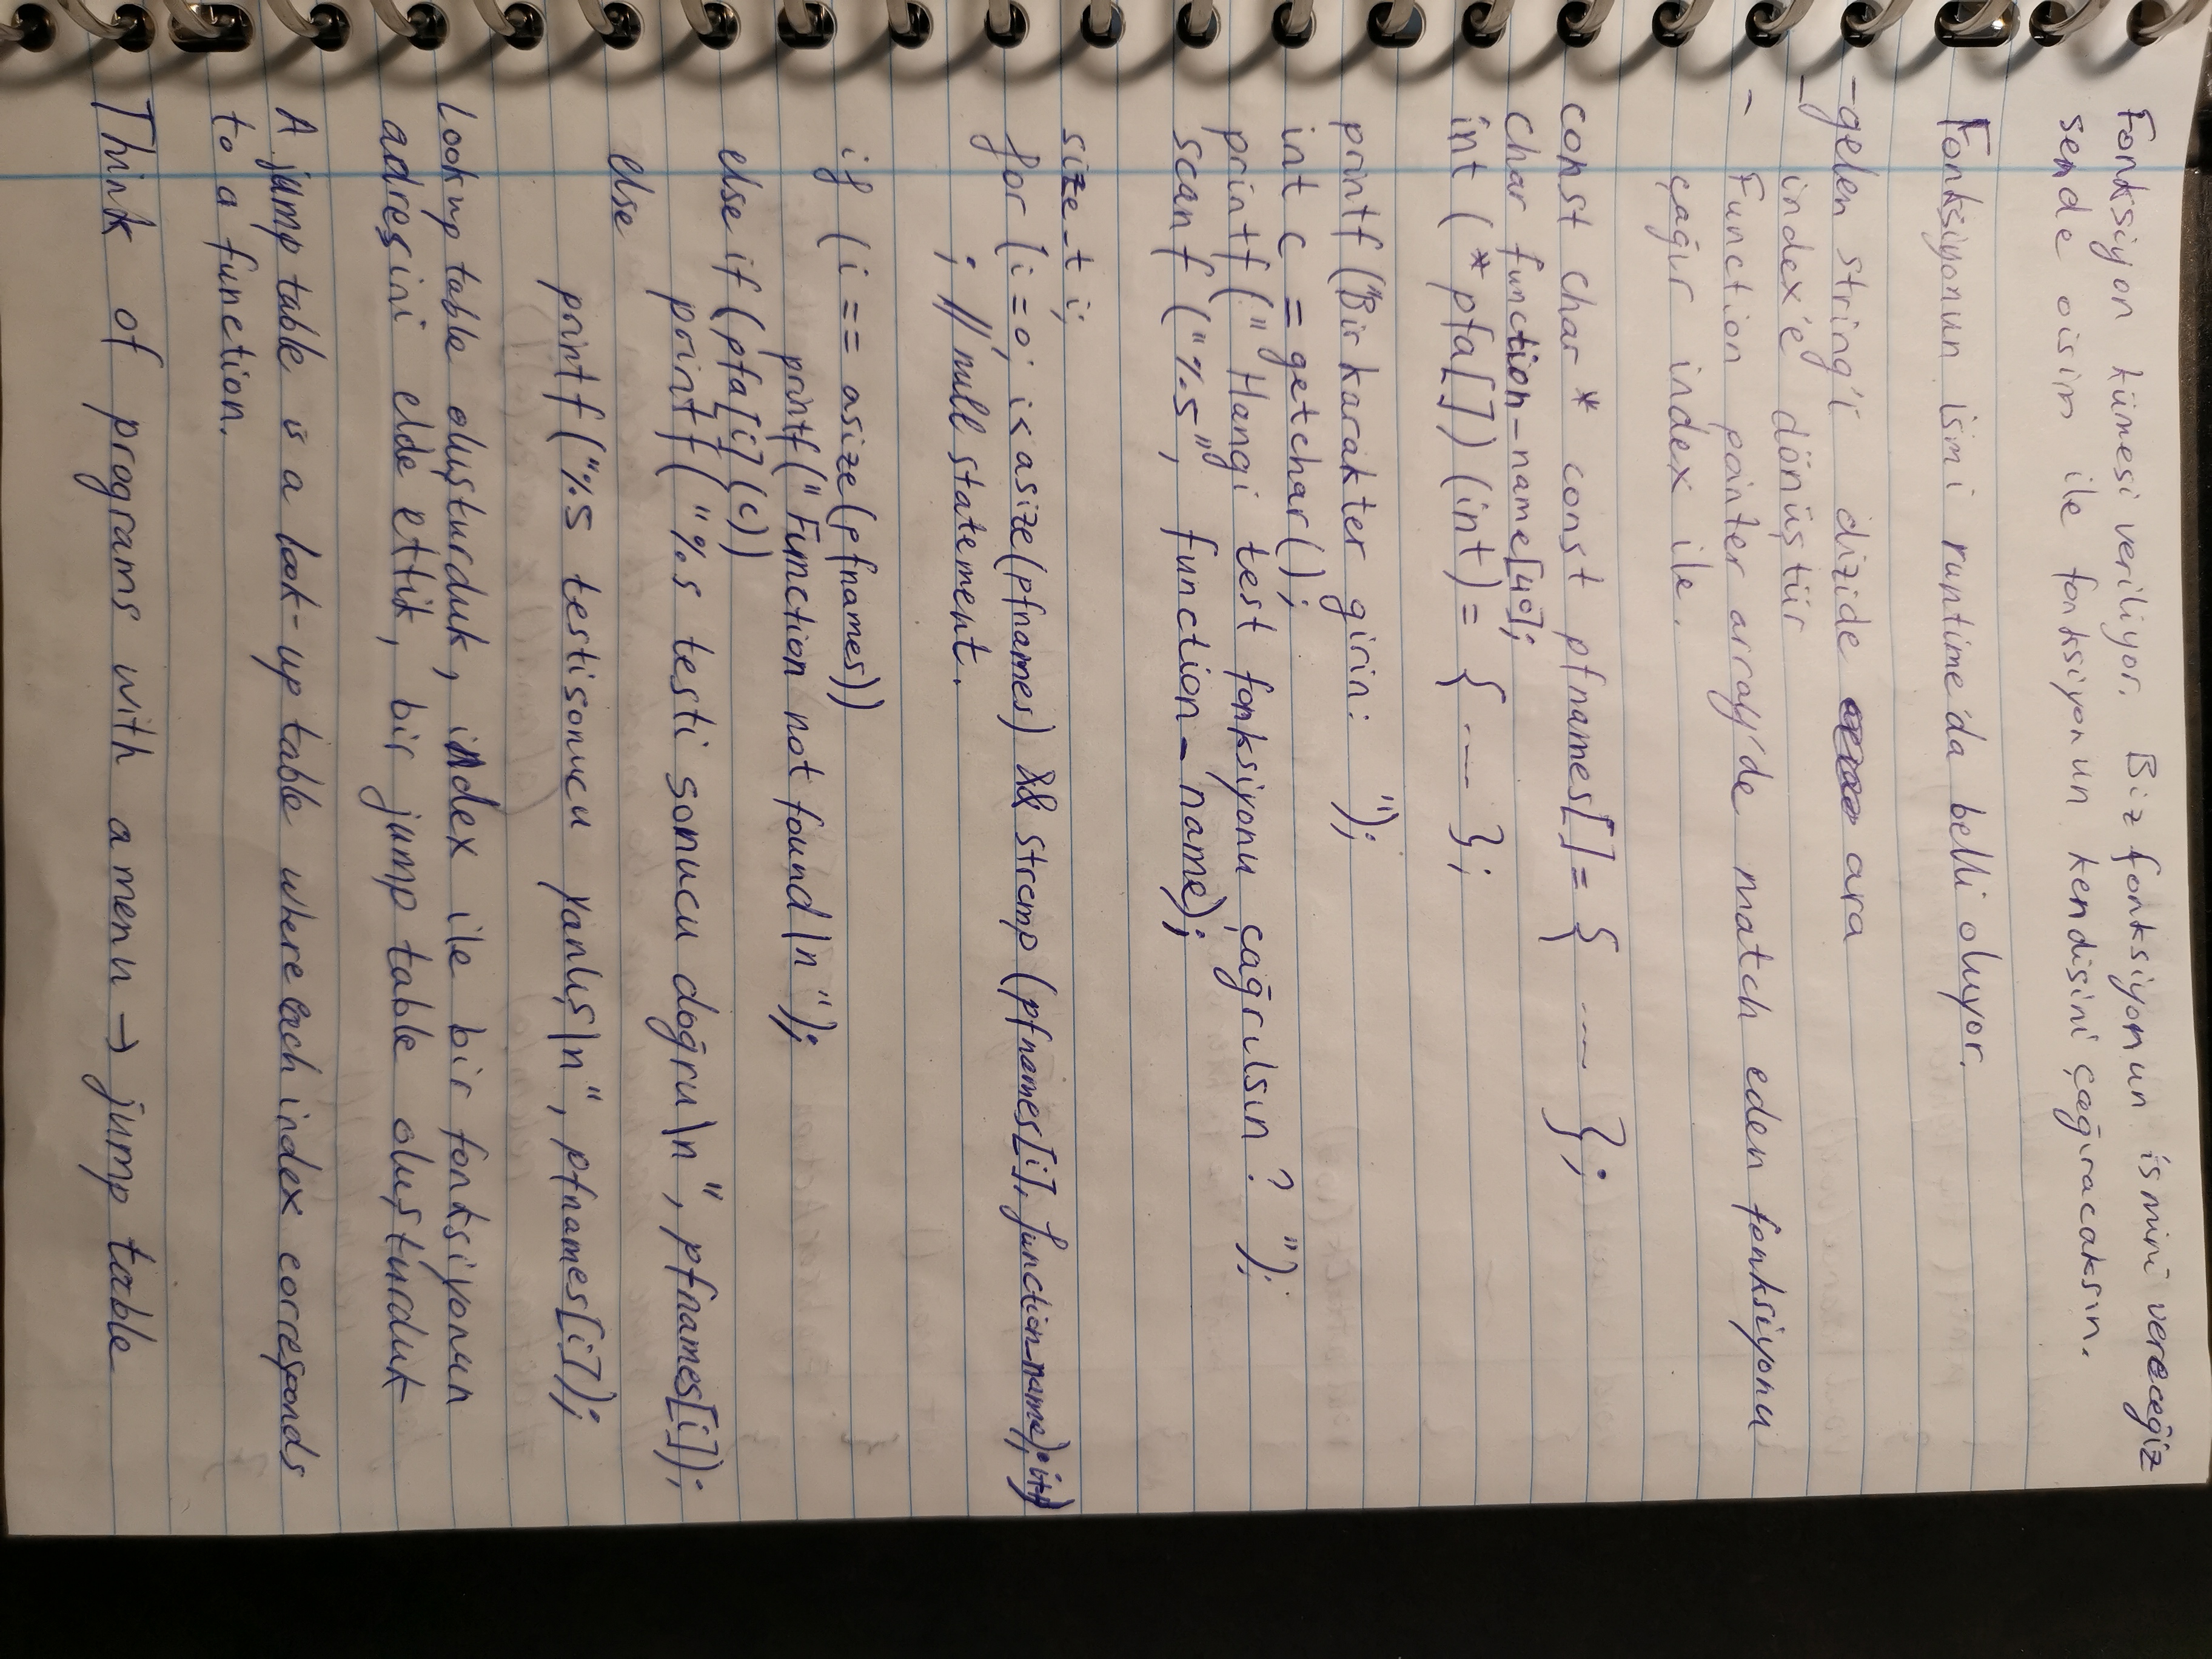 Fonksiyon kümesi veriliyor. Biz fonksiyonun ismini vereceğiz
sende oisim ile fonksiyonun kendisini çağıracaksın.
Fonksiyonun ismi runtime'da belli oluyor.
- gelen string'i dizide ara
- index'e dönüştür
- Function pointer array'de match eden fonksiyonu
çağır index ile.
const char * const pfnames[] = { ---- };
Char function_name[40];
int (*pfa[])(int) = { ---- };
printf("Bir karakter girin: ");
int c = getchar();
printf(" Hangi test fonksiyonu çağrılsın ? ");
scanf ("%s", function_name);
size_t i;
for (i=0; i<asize(pfnames) && strcmp (pfnames[i], function_name); i++)
; // null statement.
if (i == asize(pfnames))
printf(" Function not found \n ");
else if (pfa[i](c))
printf( "%s testi sonucu doğru\n ", pfnames[i]);
else
printf("%s testisonucu yanlış\n", pfnames[i]);
Look up table oluşturduk, index ile bir fonksiyonun
adreşini elde ettik, bir jump table oluşturduk
A jump table is a look-up table where each index corresponds
to a function.
Think of programs with a menu → jump table